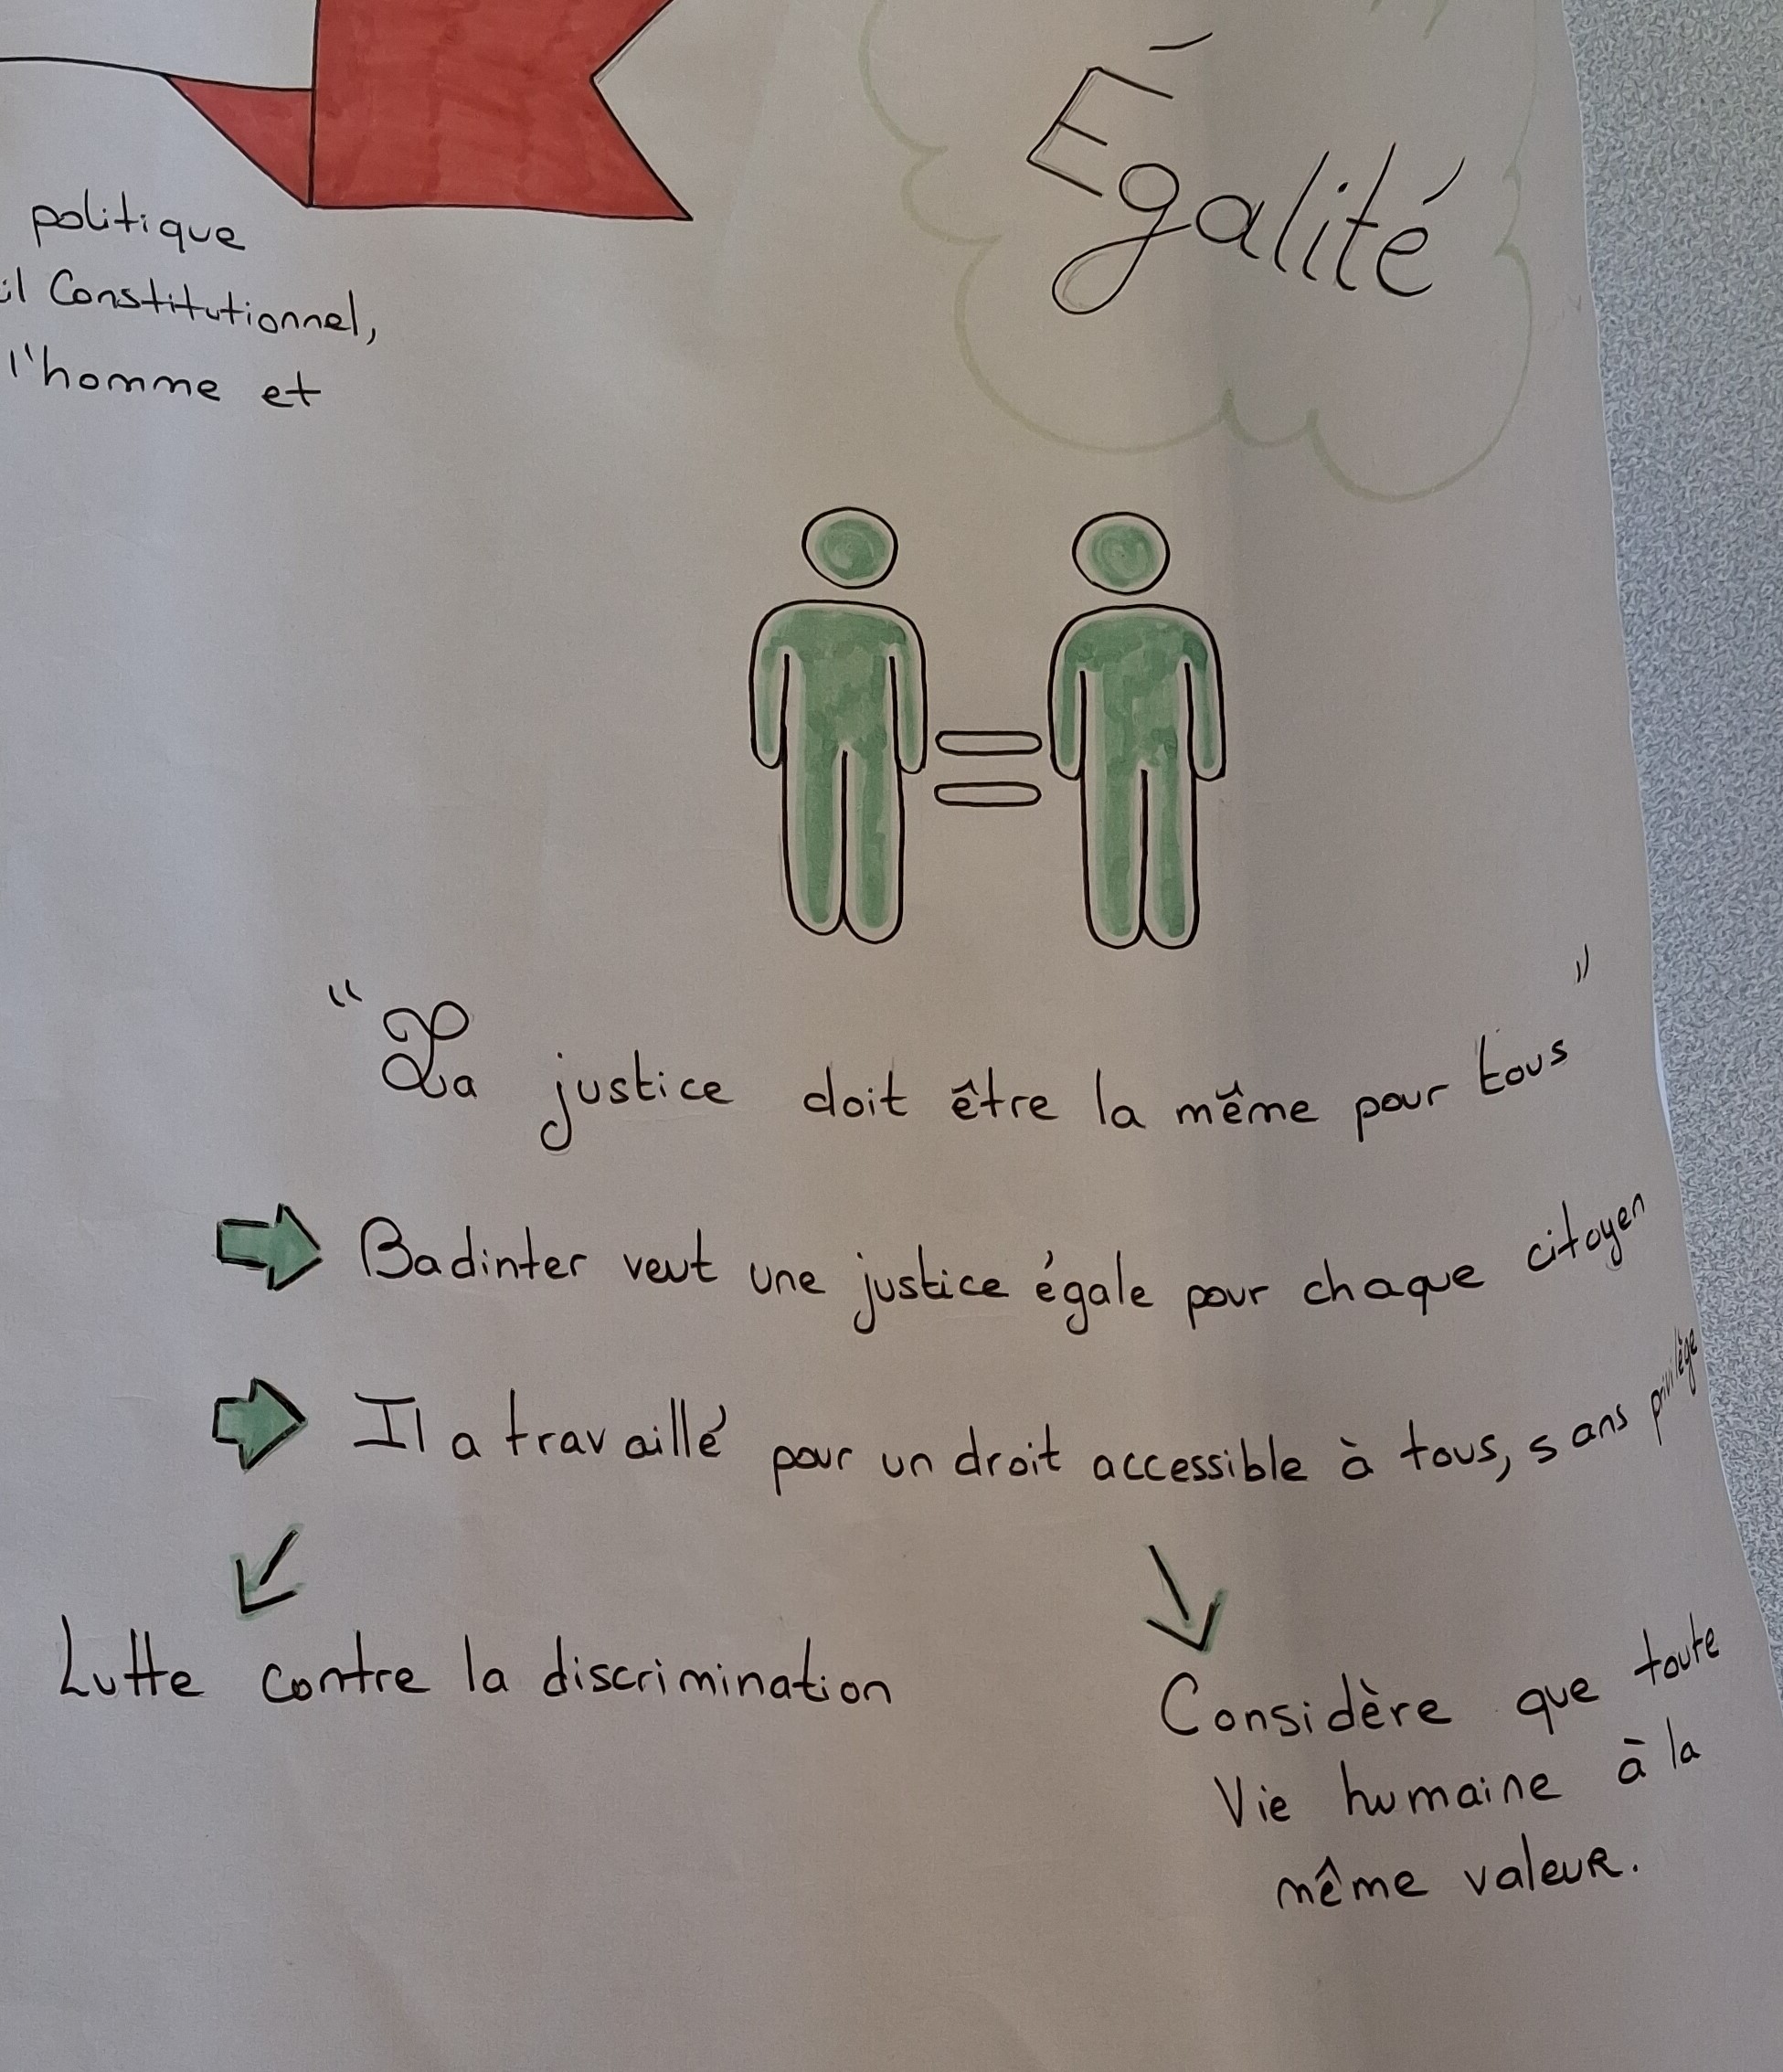 Égalité
politique
il Constitutionnel,
l'homme et
"La justice doit être la même pour tous"
Badinter veut une justice égale pour chaque citoyen
Il a travaillé pour un droit accessible à tous, sans privilège
Lutte contre la discrimination
Considère que toute
Vie humaine à la
même valeur.